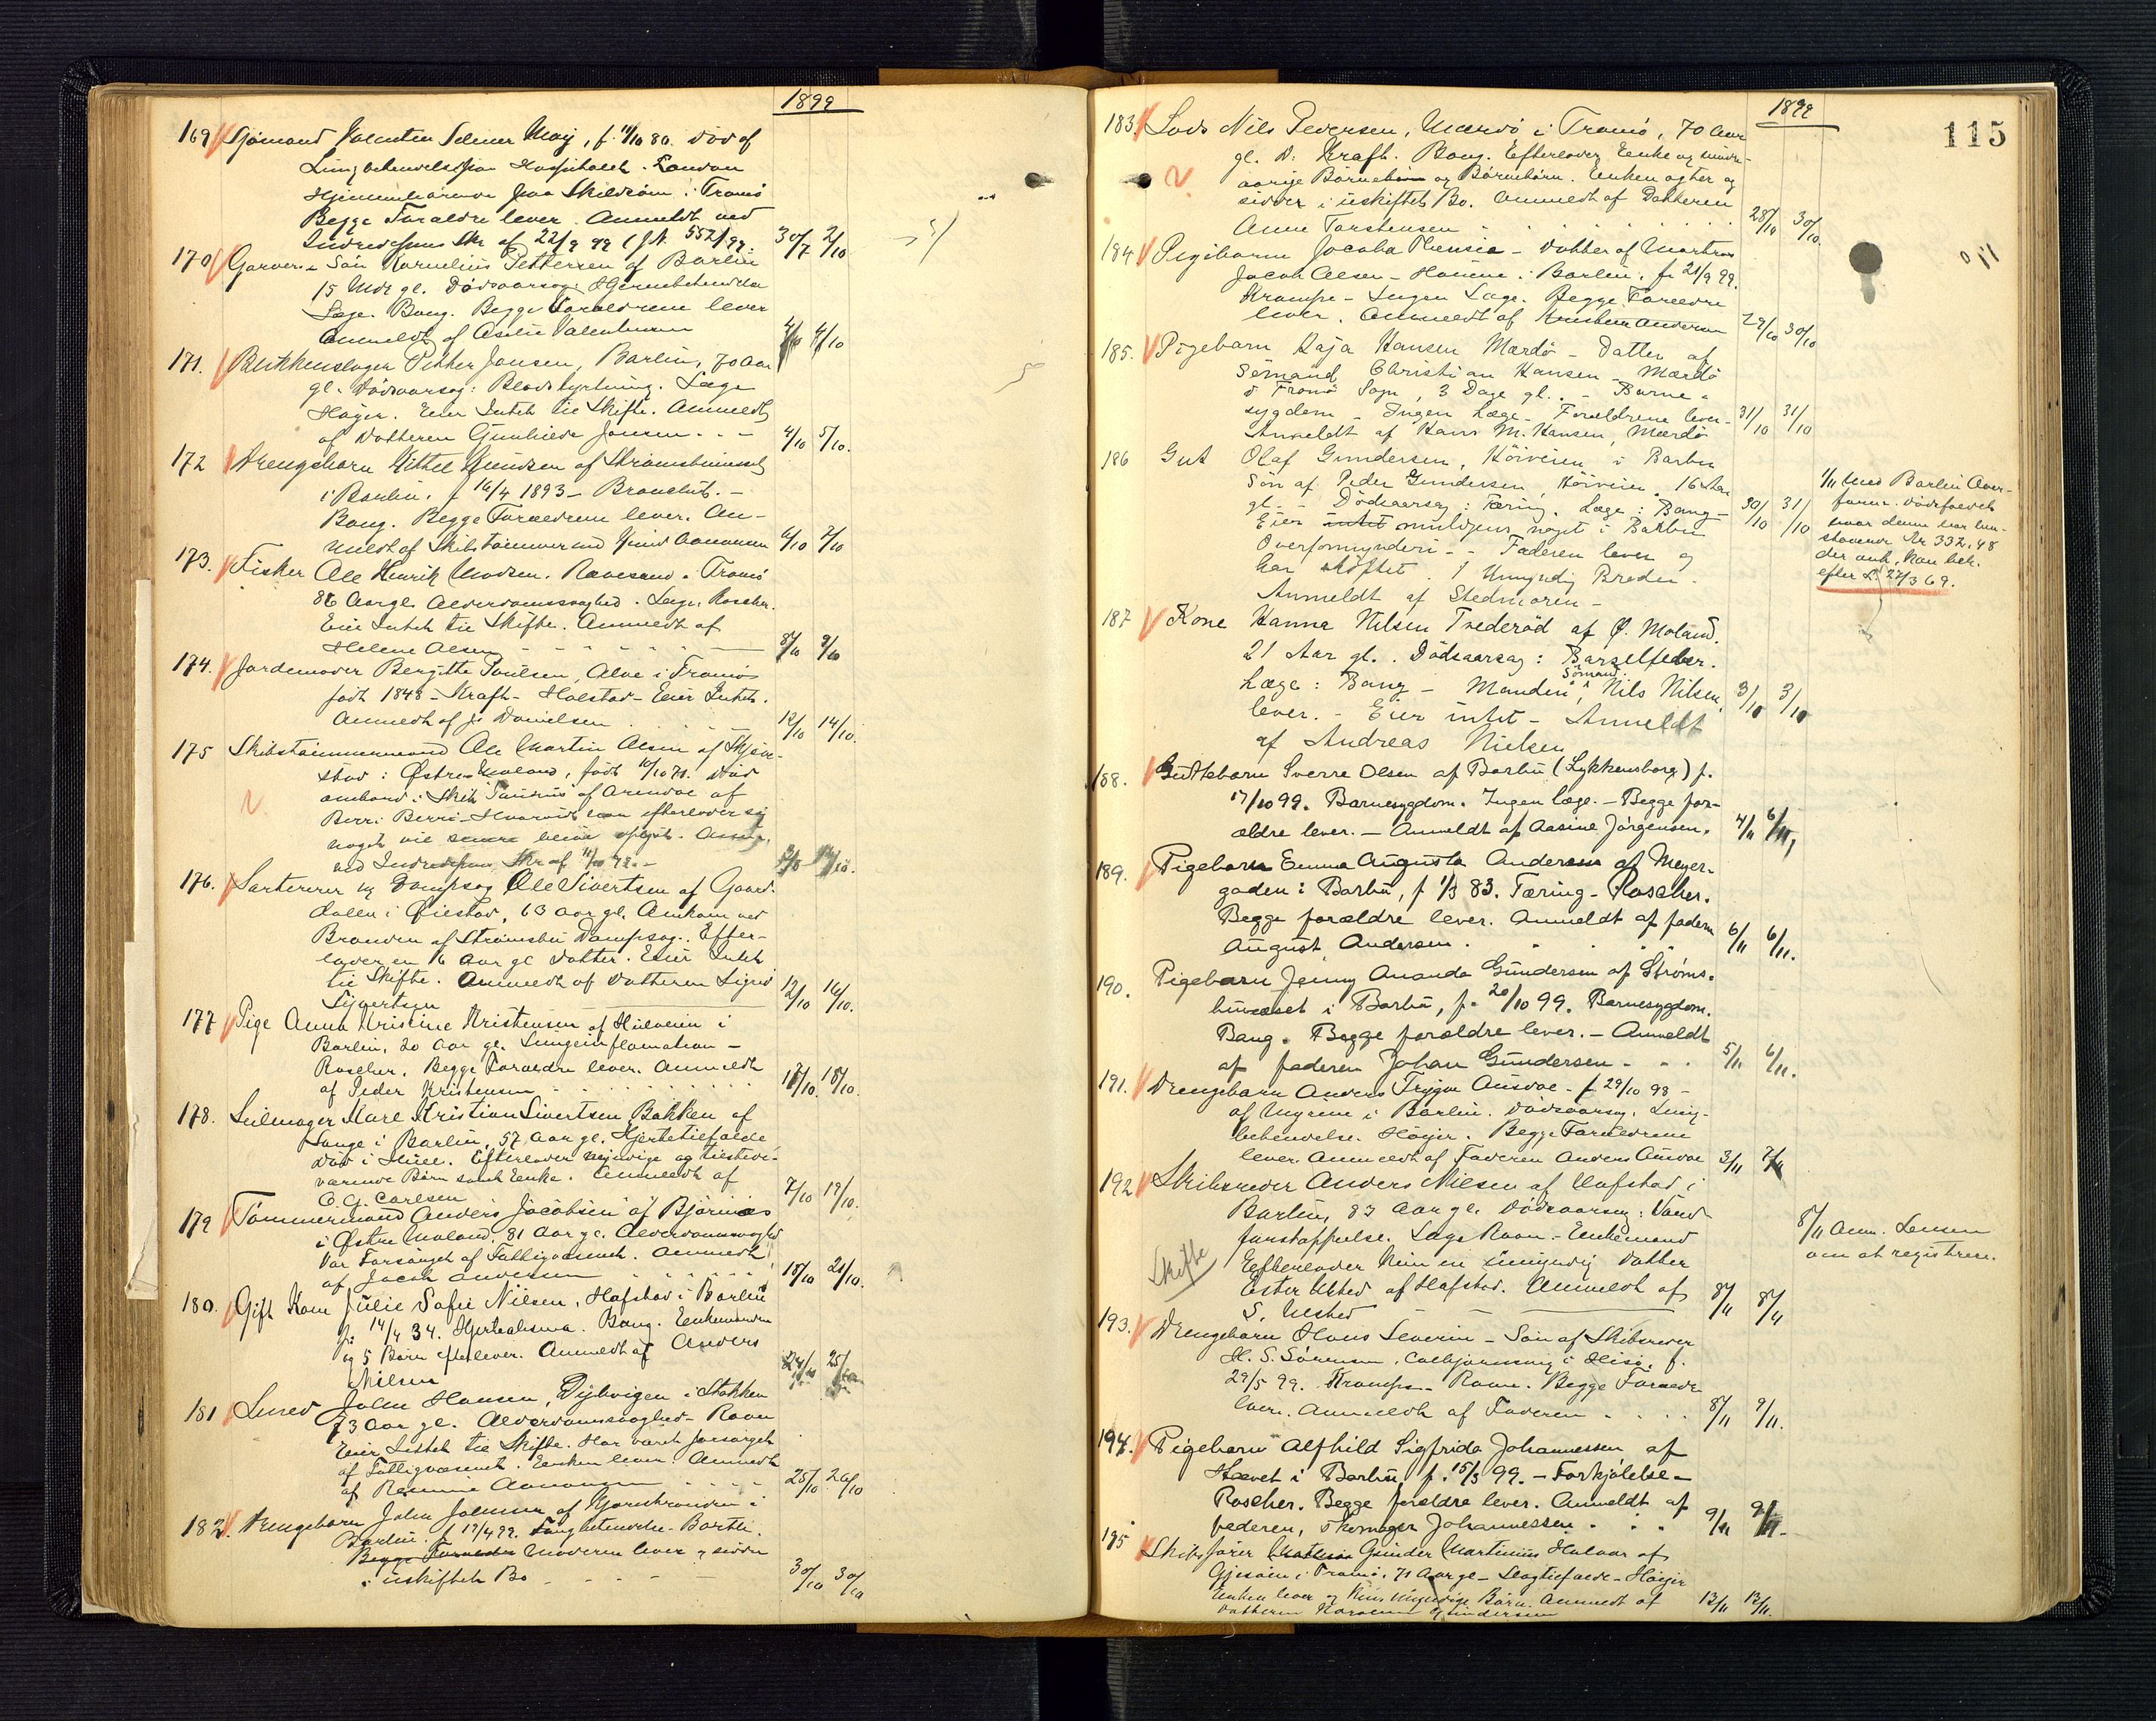 1899
169 Sjømand Valentin Selmer Moij, f. 11/10 80. Død af
Lungebetændelse paa Hospitalet i London
Hjemmehørende paa Skilsøen i Tromø
Begge Forældre lever. Anmeldt ved
Indredepms Skr af 22/9 99 (J.N. 552/99. 30/7 2/10
170 Garver - Søn Kornelius Pettersen af Barbu
15 Mdr gl. Dødsaarsag: Hjernebetændelse
Læge Bang. Begge Forældrene lever
Anmeldt af 4/10 4/10
171. Blikkenslager Petter Jansen, Barbu, 70 Aar
gl. Dødsaarsag: Blodstyrtning. Læge
Høyer. Eier Intet til Skifte. Anmeldt
af Datteren Gunhilde Jansen - - - 4/10 5/10.
172 Drengebarn Kittel Knudsen af Strømsbuneset
i Barbu. f 16/4 1893 -
Bang. Begge Forældrene lever. An-
meldt af Skibstømmermand Knud Aanonsen 6/10 7/10
173. Fisker Ole Henrik Madsen. Rævesand i Tromø
86 Aar gl. Alderdomssvaghed. Læge Roscher.
Eier Intet til Skifte. Anmeldt af
Helene Olsen - - - - 8/10 9/10
174. Jordemoder Bergitte Poulsen, Alve i Tromø
født 1848 - Kræft - Holestad - Eier Intet.
Anmeldt af Danielsen 12/10 14/10.
175 Skibstømmermand Ole Martin Olsen af
i Østre Moland, født 10/10 71. Død
ombord i Skib af Arendal af
Berri Berri - Hvorvidt han efterlader sig
noget vil senere blive opgivt.
ved Indredepms Skr af 11/10 99. -
176. Sorterer og Dampsag Ole Sivertsen af Gaard-
dalen i Øiestad, 63 Aar gl. Omkom ved
Branden af Strømsbu Dampsag. Efter-
lader en 16 Aar gl Datter. Eier Intet
til Skifte. Anmeldt af Datteren Sigrid
Sivertsen 12/10 16/10.
177 Pige Anna Kristine Kristensen af i
Barbu, 20 Aar gl. Lungeinflamation -
Roscher. Begge Forældre lever. Anmeldt
af Peder Kristensen 18/10. 18/10.
178. Seilmager Karl Kristian Sivertsen Bakken af
Lange i Barbu, 57 Aar gl. Hjertetilfælde
død i Hull. Efterlader myndige og tilstede-
værende Børn samt Enke. Anmeldt af
C. G. Carlsen 7/10 19/10.
179 Tømmermand Anders Jacobsen af Bjørnnes
i Østre Moland, 81 Aar gl. Alderdomssvaghed
Var Forsørget af Fattigvæsenet. Anmeldt
af Jacob Andersen 18/10 21/10.
180. Gift Kone Julie Sofie Nilsen, Hafstad i Barbu
f: 14/4 34. Bang. Enkemanden
og 5 Børn efterlever. Anmeldt af Anders
Nilsen
181 Smed John Hansen, Dybvigen i Stokken
73 Aar gl. Alderdomssvaghed - Roan
Eier Intet til Skifte. Har været forsørget
af Fattigvæsenet. Enken lever. Anmeldt
af Aanonsen 25/10 26/10
182. Drengebarn John Johnsen af i
Barbu. f 17/4 99. Lungbetændelse - Barth.
Begge Forældre Moderen lever og sidder
i uskiftet Bo - - - - 30/10 30/10
1899
115
183. Lods Nils Pedersen, Mærdø i Tromø, 70 Aar
gl. D: Kræft. Bang. Efterlader Enke og mindre-
aarige Børnebørn og Børnebørn. Enken agter og
sidder i uskiftet Bo. Anmeldt af Datteren
Anne Torstensen 28/10 30/10.
184 Pigebarn Jocoba Thensie - Datter af
Jacob Olsen - i Barbu. f. 21/9 99.
Krampe - Ingen Læge. Begge Forældre
lever. Anmeldt af Andersen 29/10 30/10
185. Pigebarn Kaja Hansen Mærdø - Datter af
Sømand Christian Hansen - Mærdø
i Tromø Sogn, 3 Dage gl. - Barne-
sygdom - Ingen Læge - Forældrene lever -
Anmeldt af Hans M. Hansen, Mærdø 31/10 31/10
186 Gut Olaf Gundersen, Høiveien i Barbu
Søn af Peder Gundersen, Høiveien, 16 Aar
gl. - Dødsaarsag: Tæring. Læge: Bang -
Eier intet muligens noget i Barbu
Overformynderi - - Faderen lever og
har skiftet. 1 Umyndig Broder -
Anmeldt af Stedmoren - 30/10 31/10
1/11 Med Barbu Over-
form. dødsfaldet
hvor denne har inde-
staaende Kr 332,48
der anh. kan beh.
efter L. 27/3 69.
187 Kone Hanna Nilsen Trederød af Ø. Moland.
21 Aar gl. Dødsaarsag: Barselfeber.
Læge: Bang - Manden, Sømand Nils Nilsen,
lever. - Eier intet - Anmeldt
af Andreas Nielsen 3/10 3/10
188. Guttebarn Sverre Olsen af Barbu (Lykkensborg) f.
17/10 99. Barnesygdom. Ingen læge. - Begge for-
ældre lever. - Anmeldt af Aasine Jørgensen. 4/11 6/11
189. Pigebarn Emma Augusta Andersen af Meyer-
gaden i Barbu, f 1/3 83. Tæring - Roscher.
Begge forældre lever. Anmeldt af faderen
August Andersen. 6/11 6/11.
190. Pigebarn Jenny Amanda Gundersen af Strøms-
buneset i Barbu, f. 20/10 99. Barnesygdom.
Bang. Begge forældre lever. - Anmeldt
af faderen Johan Gundersen - - - 5/11 6/11.
191. Drengebarn Anders Trygve Ausdal - f 29/10 98 -
af Myrene i Barbu. Dødsaarsag. Lung-
betændelse. Høyer. Begge Forældrene
lever. Anmeldt af Faderen Anders Ausdal 3/11 7/11
192 Skibsreder Anders Nilsen af Hafstad i
Barbu, 83 Aar gl. Dødsaarsag: Vand-
forstoppelse. Læge Roan. - Enkemand
Efterlader Kun en umyndig Datter
Ester Ulsted af Hafstad. Anmeldt af
S. Ulsted 8/11 8/11
Skifte
8/11 Anm. Lensm
om at registrere.
193. Drengebarn Hans Severin - Søn af Skibsreder
H. S. Sørensen, Colbjørnsvig i Hisø. f.
29/5 99. Krampe - Roan. Begge Forældre
lever. Anmeldt af Faderen 8/11 9/11.
194. Pigebarn Alfhild Sigfrida Johannessen af
Hævet i Barbu, f. 15/3 99. - Forkjølelse -
Roscher. Begge forældre lever. Anmeldt af
faderen, skomager Johannessen. 9/11 9/11.
195 Skibsfører Gunder Martinius Halvor af
Gjesøen i Tromø, 71 Aar gl - Slagtilfælde - Høyer
Enken lever og Kun Myndige Børn. Anmeldt af
Datteren Gundersen 13/11 13/11.